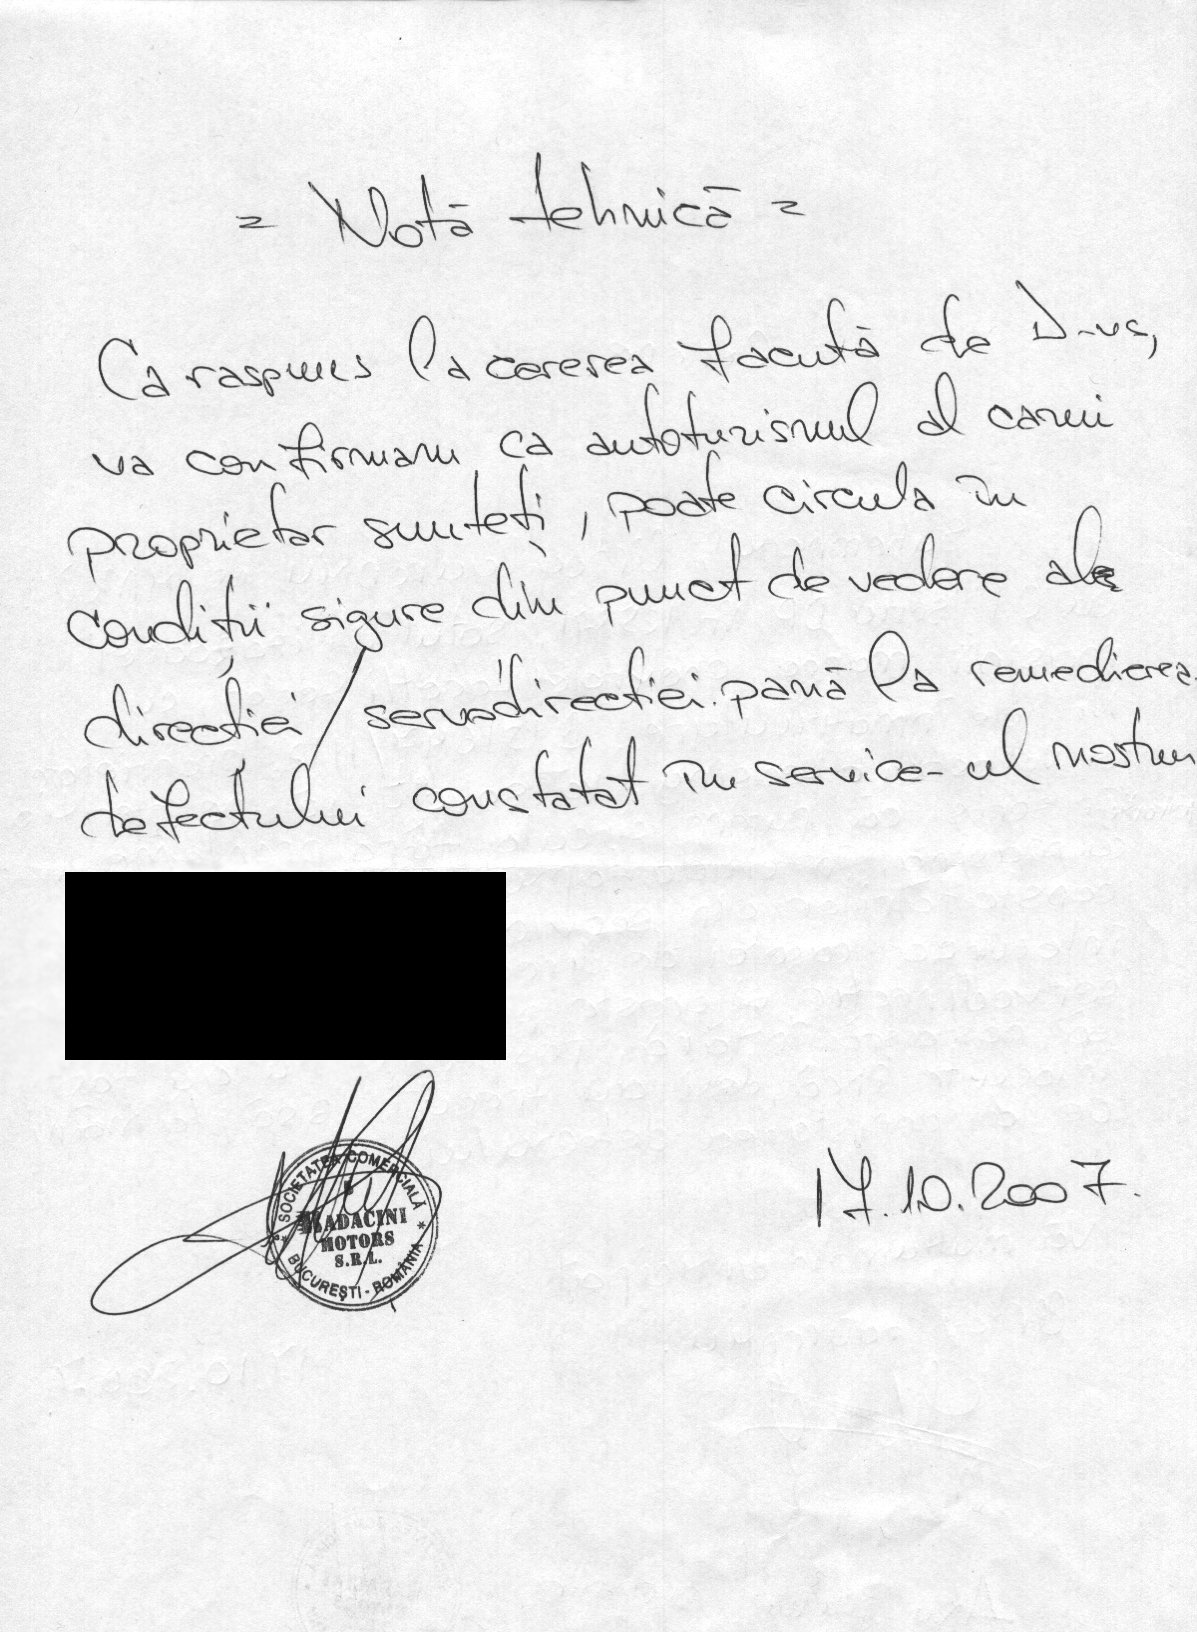 = Notă tehnică =
Ca raspuns la cererea facută de D-vs,
va confirmam ca autoturismul al carui
proprietar sunteți, poate circula în
condiții sigure din punct de vedere ale
direcției / servodirectiei. pană la remedierea
defectului constatat în service-ul nostru
SOCIETATEA COMERCIALĂ
RADACINI
MOTORS
S.R.L.
* BUCUREŞTI - ROMÂNIA *
17.10.2007.